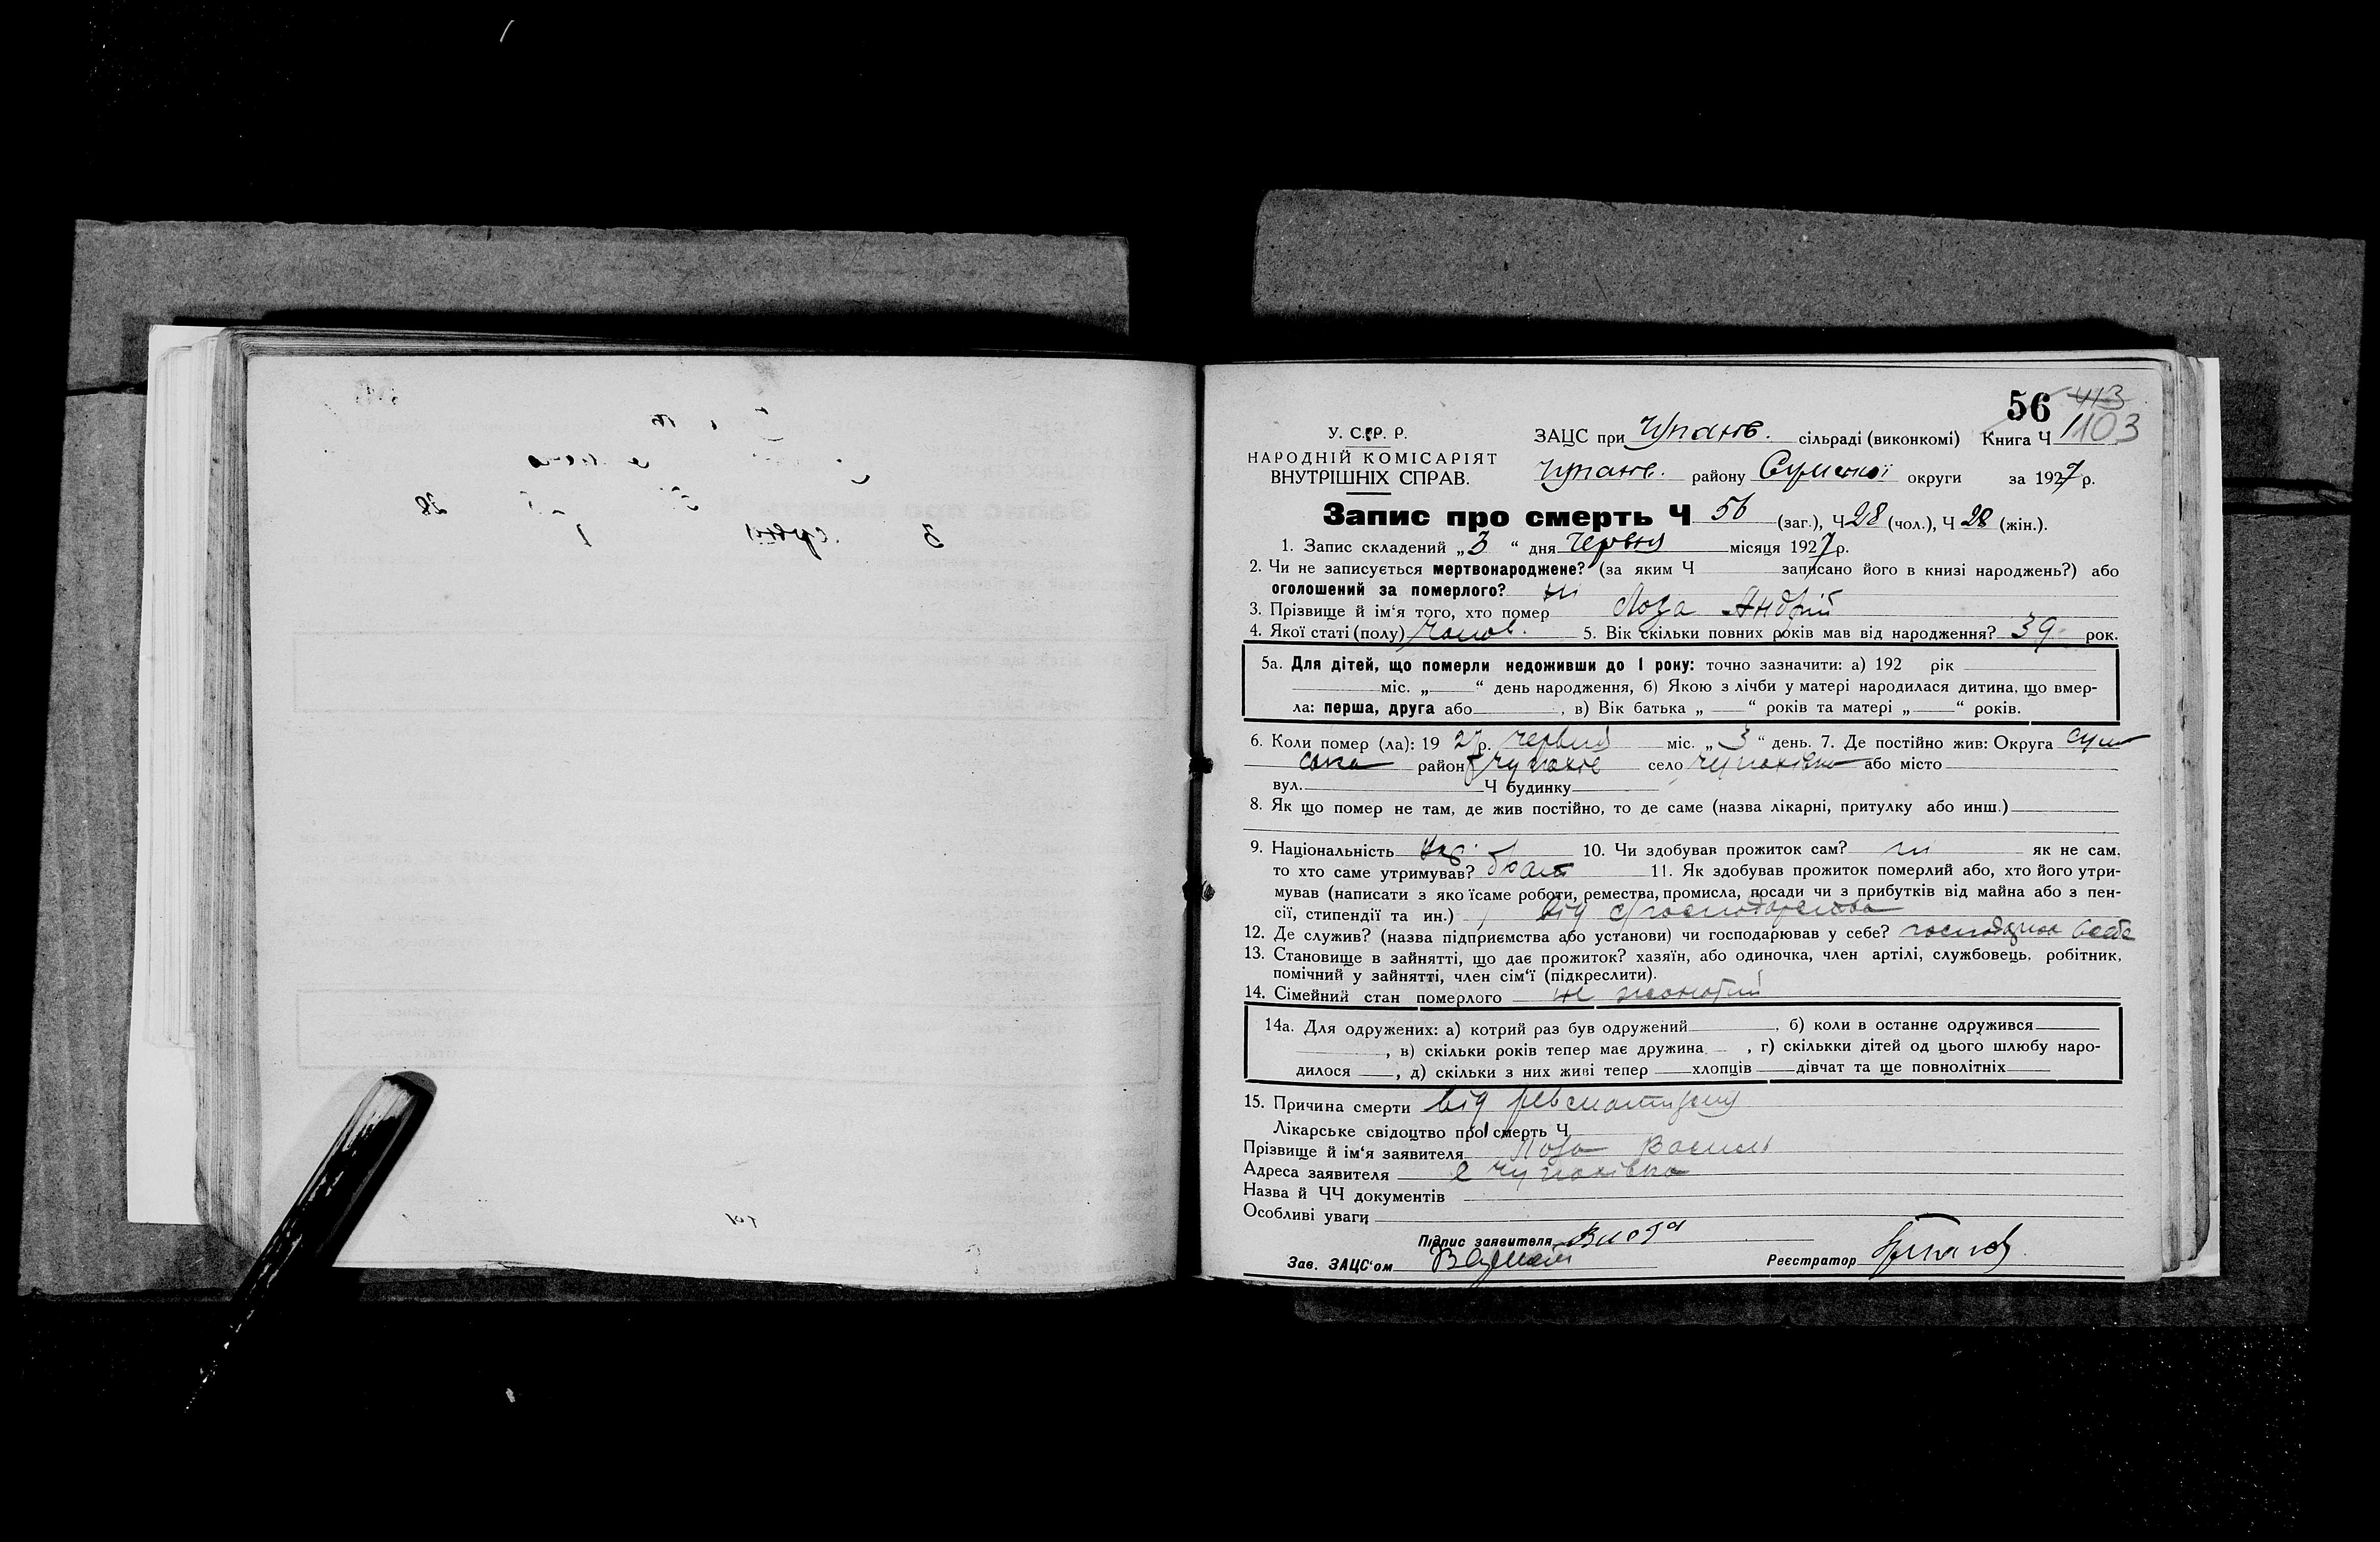 56 413
У. С. Р. Р.
НАРОДНІЙ КОМІСАРІЯТ
ВНУТРІШНІХ СПРАВ.
ЗАЦС при Чупахів. сільраді (виконкомі) Книга Ч 1103
Чупахів. району Сумської округи за 1927 р.
Запис про смерть Ч 56 (заг.), Ч 28 (чол.), Ч 28 (жін.).
1. Запис складений „3“ дня червня місяця 1927 р.
2. Чи не записується мертвонароджене? (за яким Ч записано його в книзі народжень?) або
оголошений за померлого? ні
3. Прізвище й ім‘я того, хто помер Лоза Андрій
4. Якої статі (полу) чолов. 5. Вік скільки повних років мав від народження? 39 рок.
5а. Для дітей, що померли недоживши до 1 року: точно зазначити: а) 192 рік
міс. „ “ день народження, б) Якою з лічби у матері народилася дитина, що вмер-
ла: перша, друга або , в) Вік батька „ “ років та матері „ “ років.
6. Коли помер (ла): 19 27 р. червня міс. „3“ день. 7. Де постійно жив: Округа Сум
ська район Чупахів село Чупахівка або місто
вул. Ч будинку
8. Як що помер не там, де жив постійно, то де саме (назва лікарні, притулку або инш.)
9. Національність Укр. 10. Чи здобував прожиток сам? ні як не сам,
то хто саме утримував? брат 11. Як здобував прожиток померлий або, хто його утри-
мував (написати з яко їсаме роботи, ремества, промисла, посади чи з прибутків від майна або з пен-
сії, стипендії та ин.) від с/господарства
12. Де служив? (назва підприємства або установи) чи господарював у себе?
13. Становище в зайнятті, що дає прожиток? хазяїн, або одиночка, член артілі, службовець, робітник,
помічний у зайнятті, член сім‘ї (підкреслити).
14. Сімейний стан померлого не жонатий
14а. Для одружених: а) котрий раз був одружений , б) коли в останнє одружився
, в) скільки років тепер має дружина , г) скількки дітей од цього шлюбу наро-
дилося , д) скільки з них живі тепер хлопців дівчат та ще повнолітніх
15. Причина смерти від ревматизму
Лікарське свідоцтво про смерть Ч
Прізвище й ім‘я заявителя Лоза Василь
Адреса заявителя с Чупахівка
Назва й ЧЧ документів
Особливі уваги
Підпис заявителя
Зав. ЗАЦС‘ом Реєстратор